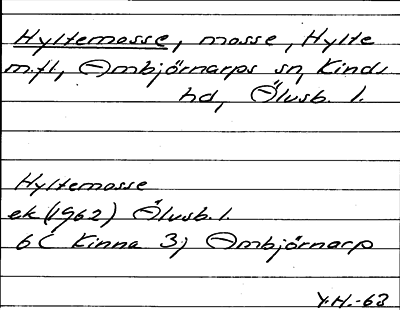 Hyltemosse, mosse, Hylte
m.fl., Ombjörnarps sn, Kinds
hd, Älvsb. l.
Hyltemosse
ek (1962) Älvsb. l.
6C Kinna 3j Ombjörnarp
Y.H.-63